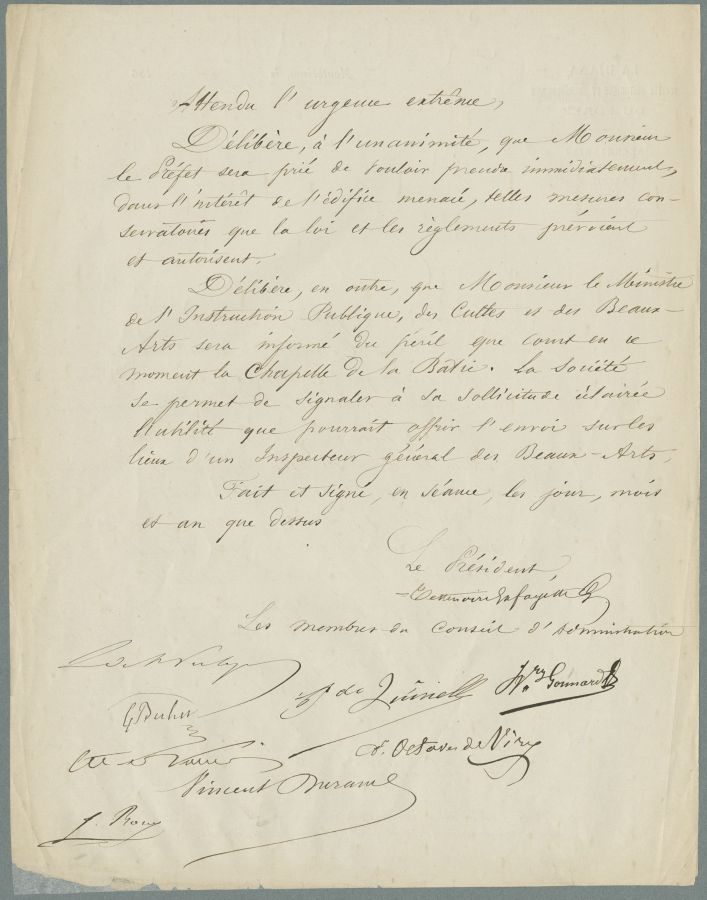 Attendu l'urgence extrême,
Délibère, à l'unanimité, que Monsieur
le Préfet sera prié de vouloir prendre immédiatement,
dans l'intérêt de l'édifice menacé, telles mesures con-
servatoires que la loi et les règlements prévoient
et autorisent.
Délibère, en outre, que Monsieur le Ministre
de l'Instruction Publique, des Cultes et des Beaux-
Arts sera informé du péril que court en ce
moment la Chapelle de la Bâtie. La Société
se permet de signaler à sa sollicitude éclairée
l'utilité que pourrait offrir l'envoi sur les
lieux d'un Inspecteur général des Beaux-Arts.
Fait et signé, en séance, les jour, mois
et an que dessus
Le Président
Les membres du Conseil d'Administration
Gonnard
Octave de Viry
Vincent Durand